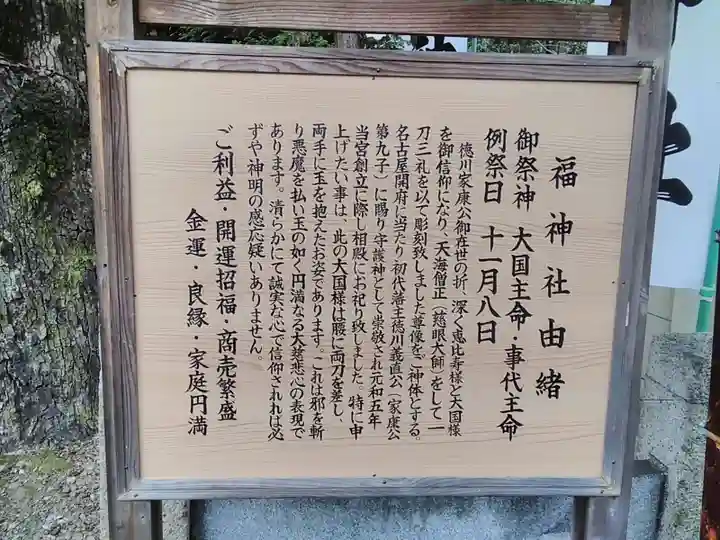 福神社由緒
御祭神 大国主命・事代主命
例祭日 十一月八日
徳川家康公御在世の折、深く恵比寿様と大国様
を御信仰になり、天海僧正（慈眼大師）をして一
刀三礼を以て彫刻致しました尊像をご神体とする。
名古屋開府に当たり初代藩主徳川義直公（家康公
第九子）に賜り守護神として崇敬され元和五年
当宮創立に際し相殿にお祀り致しました。特に申
上げたい事は、此の大国様は腰に両刀を差し、
両手に玉を抱えたお姿であります。これは邪を斬
り悪魔を払い玉の如く円満なる大慈悲心の表現で
あります。清らかにて誠実な心で信仰されれば必
ずや神明の感応疑いありません。
ご利益・開運招福・商売繁盛
金運・良縁・家庭円満